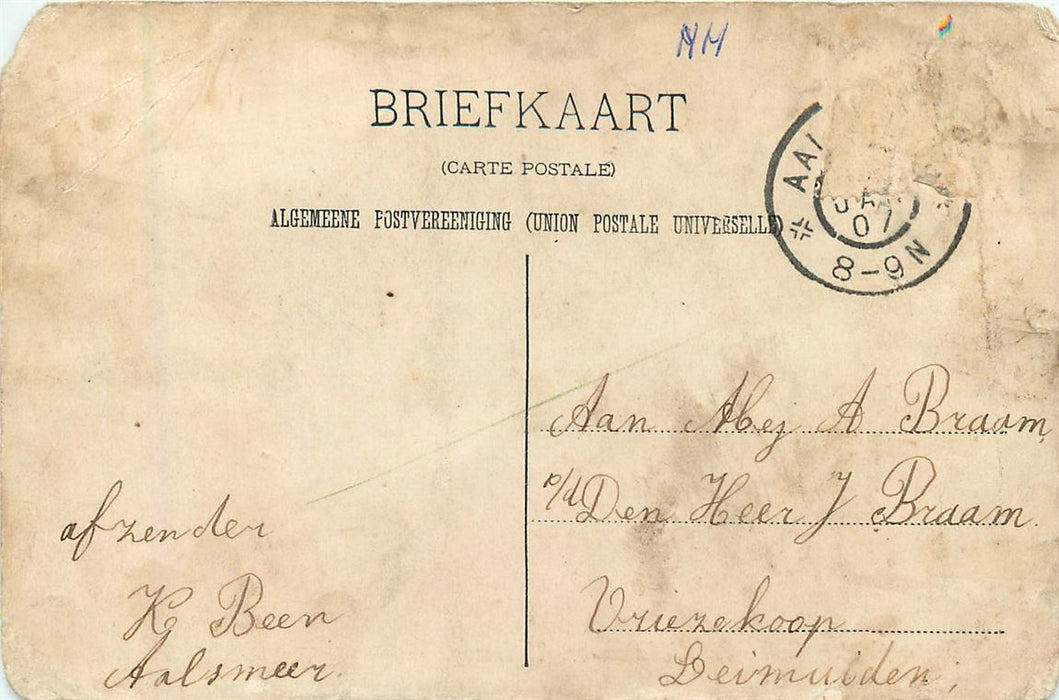 BRIEFKAART
(CARTE POSTALE)
ALGEMEENE POSTVEREENIGING (UNION POSTALE UNIVERSELLE)
07
8-9N
Aan Mej A Braam
p/a Den Heer J Braam
Vriezekoop
Leimuiden.
afzender
K Been
Aalsmeer.